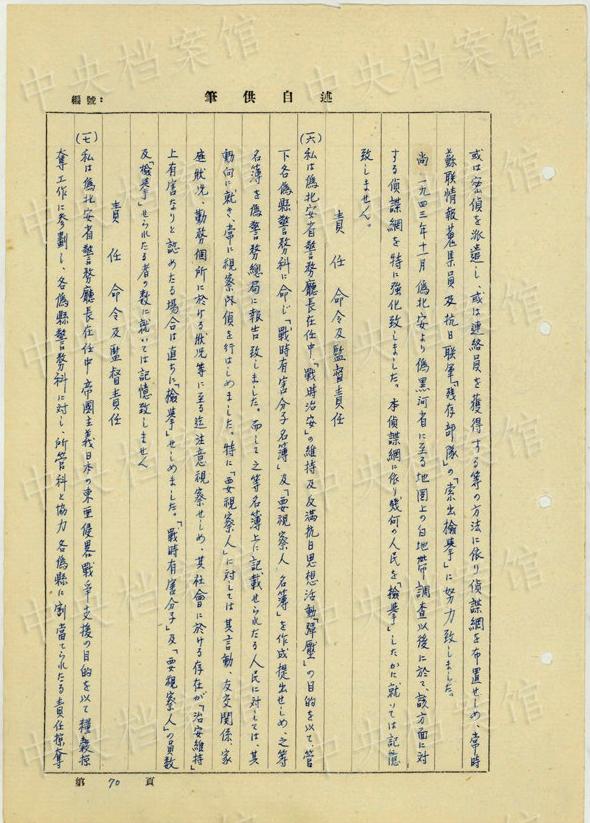 中央档案馆
編號:
筆供自述
或は密偵を派遣し、或は連絡員を獲得する等の方法に依り偵諜網を布置せしめ、常時
蘇联情報蒐集員及抗日联軍「残存部隊」の「索出檢挙」に努力致しました。
尚一九四三年十一月偽北安より偽黒河省に至る地図上の白地帯調査以後に於て、該方面に対
する偵諜網を特に強化致しました。本偵諜網に依り幾何の人民を「檢挙」したかに就いては記憶
致しません。
責任 命令及監督責任
(六)私は偽北安省警務廳長在任中、「戰時治安」の維持及反満抗日思想活動「弾壓」の目的を以て、管
下各偽縣警務科に命じ「戰時有害分子名簿」及「要視察人名簿」を作成提出せしめ、之等
名簿を偽警務総局に報告致しました。而して之等名簿上に記載せられたる人民に対しては、其
動向に就き、常に視察内偵を行はしめました。特に「要視察人」に対しては其言動、友交関係、家
庭状況、勤務個所に於ける状況等に至る迄注意視察せしめ、其社會に於ける存在が「治安維持」
上有害なりと認めたる場合は直ちに「檢挙」せしめました。「戰時有害分子」及「要視察人」の員数
及「檢挙」せられたる者の数に就いては記憶致しません
責任 命令及監督責任
(七)私は偽北安省警務廳長在任中帝國主義日本の東亜侵畧戰爭支援の目的を以て糧穀掠
奪工作に参劃し、各偽縣警務科に対し、所管科と協力各偽縣に割當てられたる責任掠奪
第 70 頁